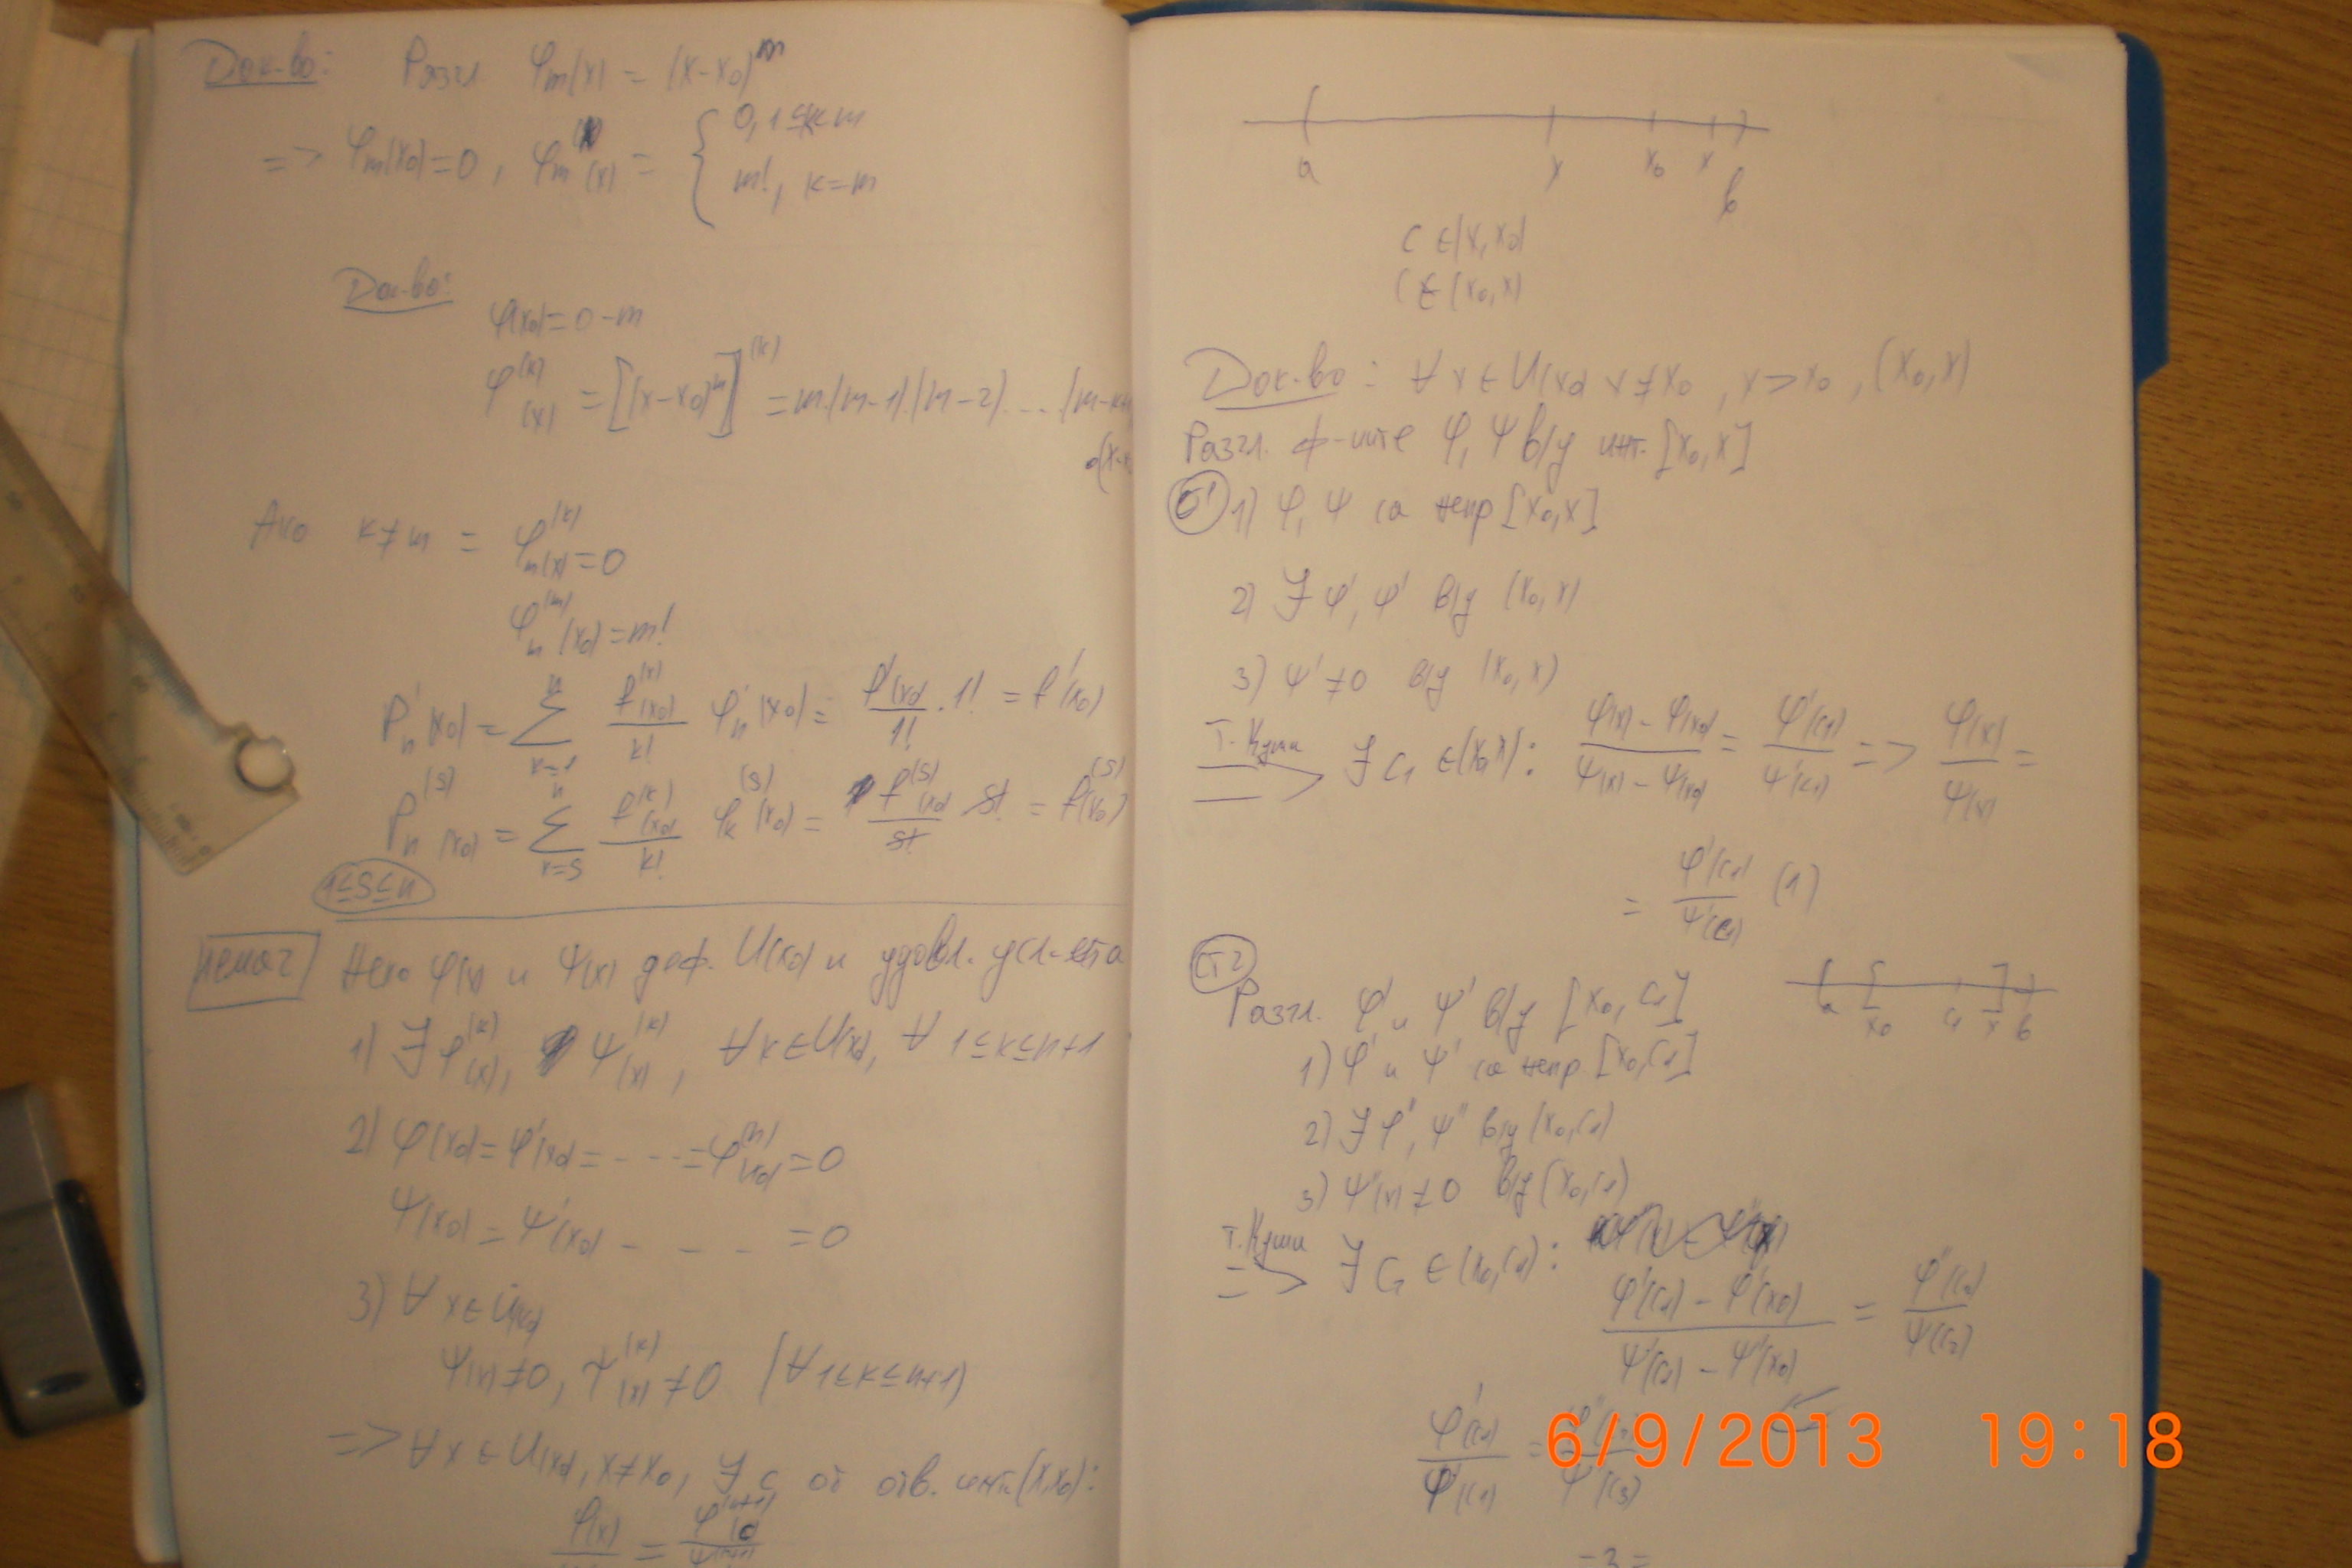 Док-во: Разгл φm(x) = (x-x0)^m
=> φm(x0)=0, φm^(k)(x) = { 0, 1≤k<m
m!, k=m
Док-во:
φ(x0)=0-m
φ^(k)(x) = [(x-x0)^m]^(k) = m.(m-1)(m-2)....(m-k+1
.(x-x
Ако k≠m = φ^(k)m(x)=0
φ^(m)n(x0)=m!
P'n(x0) = Σ k=1 n f^(k)(x0)/k! φ'n(x0) = f'(x0)/1! . 1! = f'(x0)
Pn^(s)(x0) = Σ k=s n f^(k)(x0)/k! φk^(s)(x0) = f^(s)(x0)/s! s! = f^(s)(x0)
1≤s≤n
Нека φ(x) и ψ(x) деф. U(x0) и удовл. усл-ята
1) ∃ φ^(k)(x), ψ^(k)(x), ∀x∈U(x0), ∀ 1≤k≤n+1
2) φ(x0)=φ'(x0)=----=φ^(n)(x0)=0
ψ(x0)=ψ'(x0) - - - =0
3) ∀ x∈U(x0)
ψ(x)≠0, ψ^(k)(x)≠0 (∀1≤k≤n+1)
=> ∀x∈U(x0), x≠x0, ∃ c от отв. инт(x,x0):
φ(x)/ = φ^(n+1)(c)/ψ^(n+1)
a x x0 x b
c ∈(x,x0)
c ∈(x0,x)
Док-во: ∀x∈U(x0) x≠x0, x>x0, (x0,x)
Разгл. ф-ите φ,ψ в/у инт. [x0,x]
1) φ,ψ са непр [x0,x]
2) ∃ φ',φ' в/у (x0,x)
3) ψ'≠0 в/у (x0,x)
Т.Куши => ∃ c1 ∈(x0x): φ(x)-φ(x0)/ψ(x)-ψ(x0) = φ'(c1)/ψ'(c1) => φ(x)/ψ(x) =
= φ'(c1)/ψ'(c1) (1)
ст2
Разгл. φ' и ψ' в/у [x0,c1] a x0 c1 x b
1) φ' и ψ' са непр. [x0,c1]
2) ∃ φ'', ψ'' в/у (x0,c1)
3) ψ''(x)≠0 в/у (x0,c1)
Т.Куши => ∃ c2 ∈(x0,c1):
φ'(c1)-φ'(x0)/ψ'(c1)-ψ'(x0) = φ''(c2)/ψ''(c2)
φ'(c1)/ψ'(c1) = <=
6/9/2013 19:18